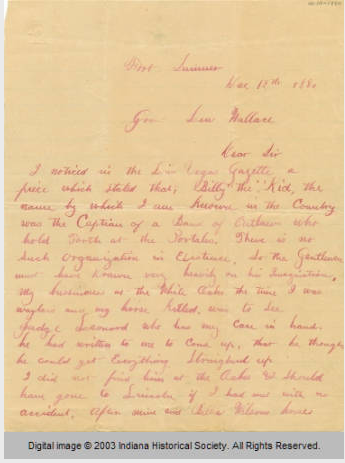 Fort Sumner
Dec 12th 1880
Gov Lew Wallace
Dear Sir
I noticed in the Las Vegas Gazette a
piece which stated that, Billy "the" Kid, the
name by which I am known in the Country
was the Captian of a Band of Outlaws who
hold Forth at the Portales. There is no
Such Organization in Existence. So the Gentleman
must have drawn very heavily on his Imagination.
My business at the White Oaks the time I was
waylaid and my horse killed was to See
Judge Leonard who has my case in hand.
he had written to me to Come up, that he thought
he could get Everything Straightend up
I did not find him at the Oaks & Should
have gone to Lincoln if I had met with no
accident. After mine and Billie Wilsons horses
Digital image © 2003 Indiana Historical Society. All Rights Reserved.